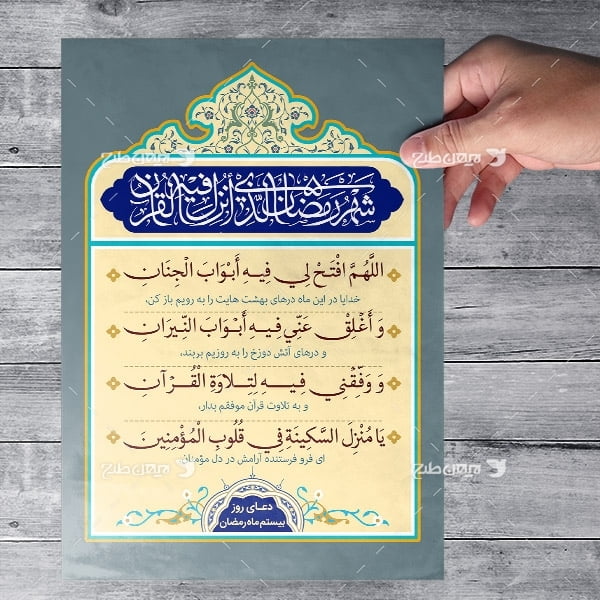 شَهْرُ رَمَضَانَ الَّذِي أُنْزِلَ فِيهِ الْقُرْآنُ
اللَّهُمَّ افْتَحْ لِي فِيهِ أَبْوَابَ الْجِنَانِ
خدایا در این ماه درهای بهشت هایت را به رویم باز کن،
وَ أَغْلِقْ عَنِّي فِيهِ أَبْوَابَ النِّيرَانِ
و درهای آتش دوزخ را به روزیم بربند،
وَ وَفِّقْنِي فِيهِ لِتِلَاوَةِ الْقُرْآنِ
و به تلاوت قرآن موفقم بدار،
يَا مُنْزِلَ السَّكِينَةِ فِي قُلُوبِ الْمُؤْمِنِينَ
ای فرو فرستنده آرامش در دل مؤمنان.
دعـای روز
بیستم ماه رمضان
میهن طرح
میهن طرح
میهن طرح
میهن طرح